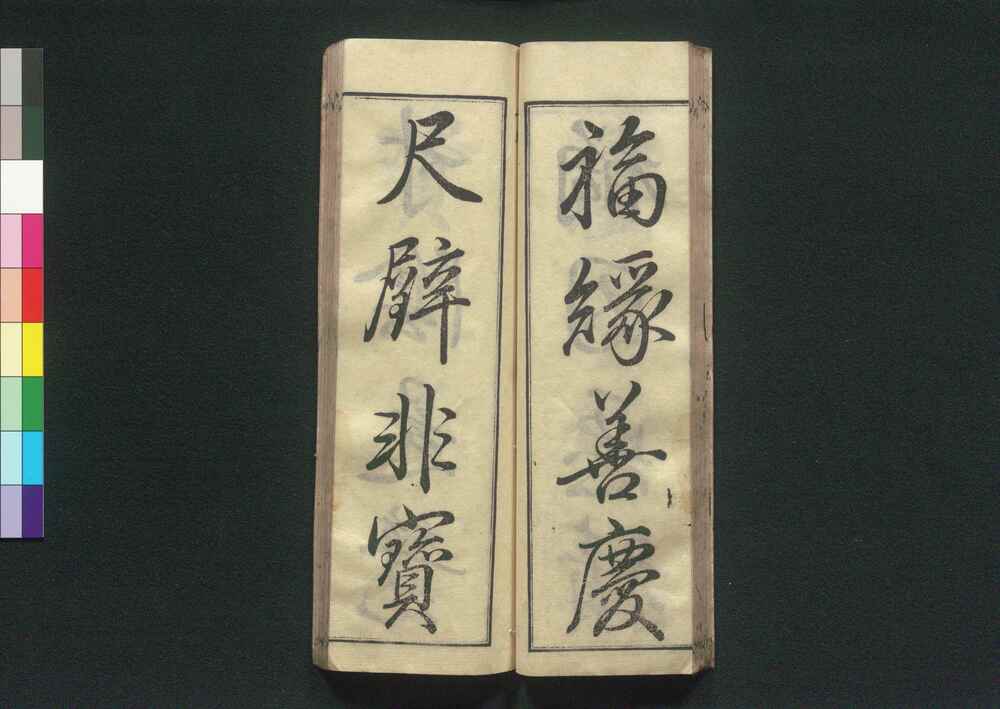 福緣善慶
尺璧非寶